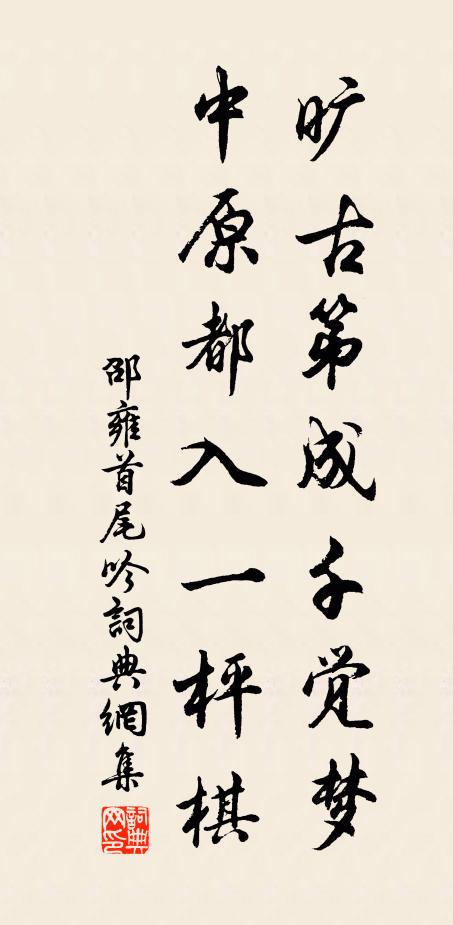 旷古第成千觉梦
中原都入一枰棋
邵雍首尾吟詞典網集
詞典
网印